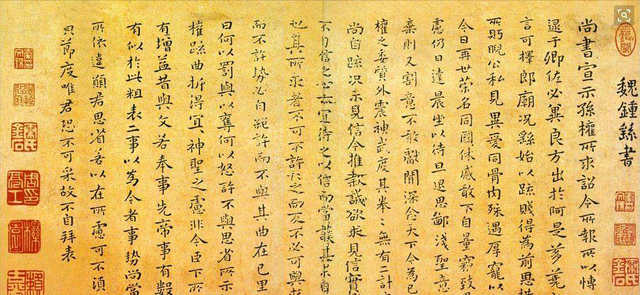 魏鍾繇書
尚書宣示孫權所求詔令所報所以博
逮于卿佐必冀良方出於阿是芻蕘
言可擇郎廟況繇始以疏賤得為前恩橫
所眄睨公私見異愛同骨肉殊遇厚寵以
今日再世榮名同國休慼敢不自量竊致
慮仍日達晨坐以待旦退思鄙淺聖意
棄則又割意不敢獻聞深念天下今為已
權之委質外震神武度其拳拳無有二計
尚自疏況未見信今推款誠欲求見信實
不自信之心亦宜待之以信而當護其未自
也其所求者不可不許許之而反不必可與
而不許勢必自絕許而不與其曲在己里
曰何以罰與以奪何以怒許不與思省所示
權疏曲折得宜宜神聖之慮非今臣下所
有增益昔與文若奉事先帝事有數
有似於此粗表二事以為今者事勢尚當
所依違願君思省若以在所慮可不須
貌節度唯君恐不可采故不自拜表